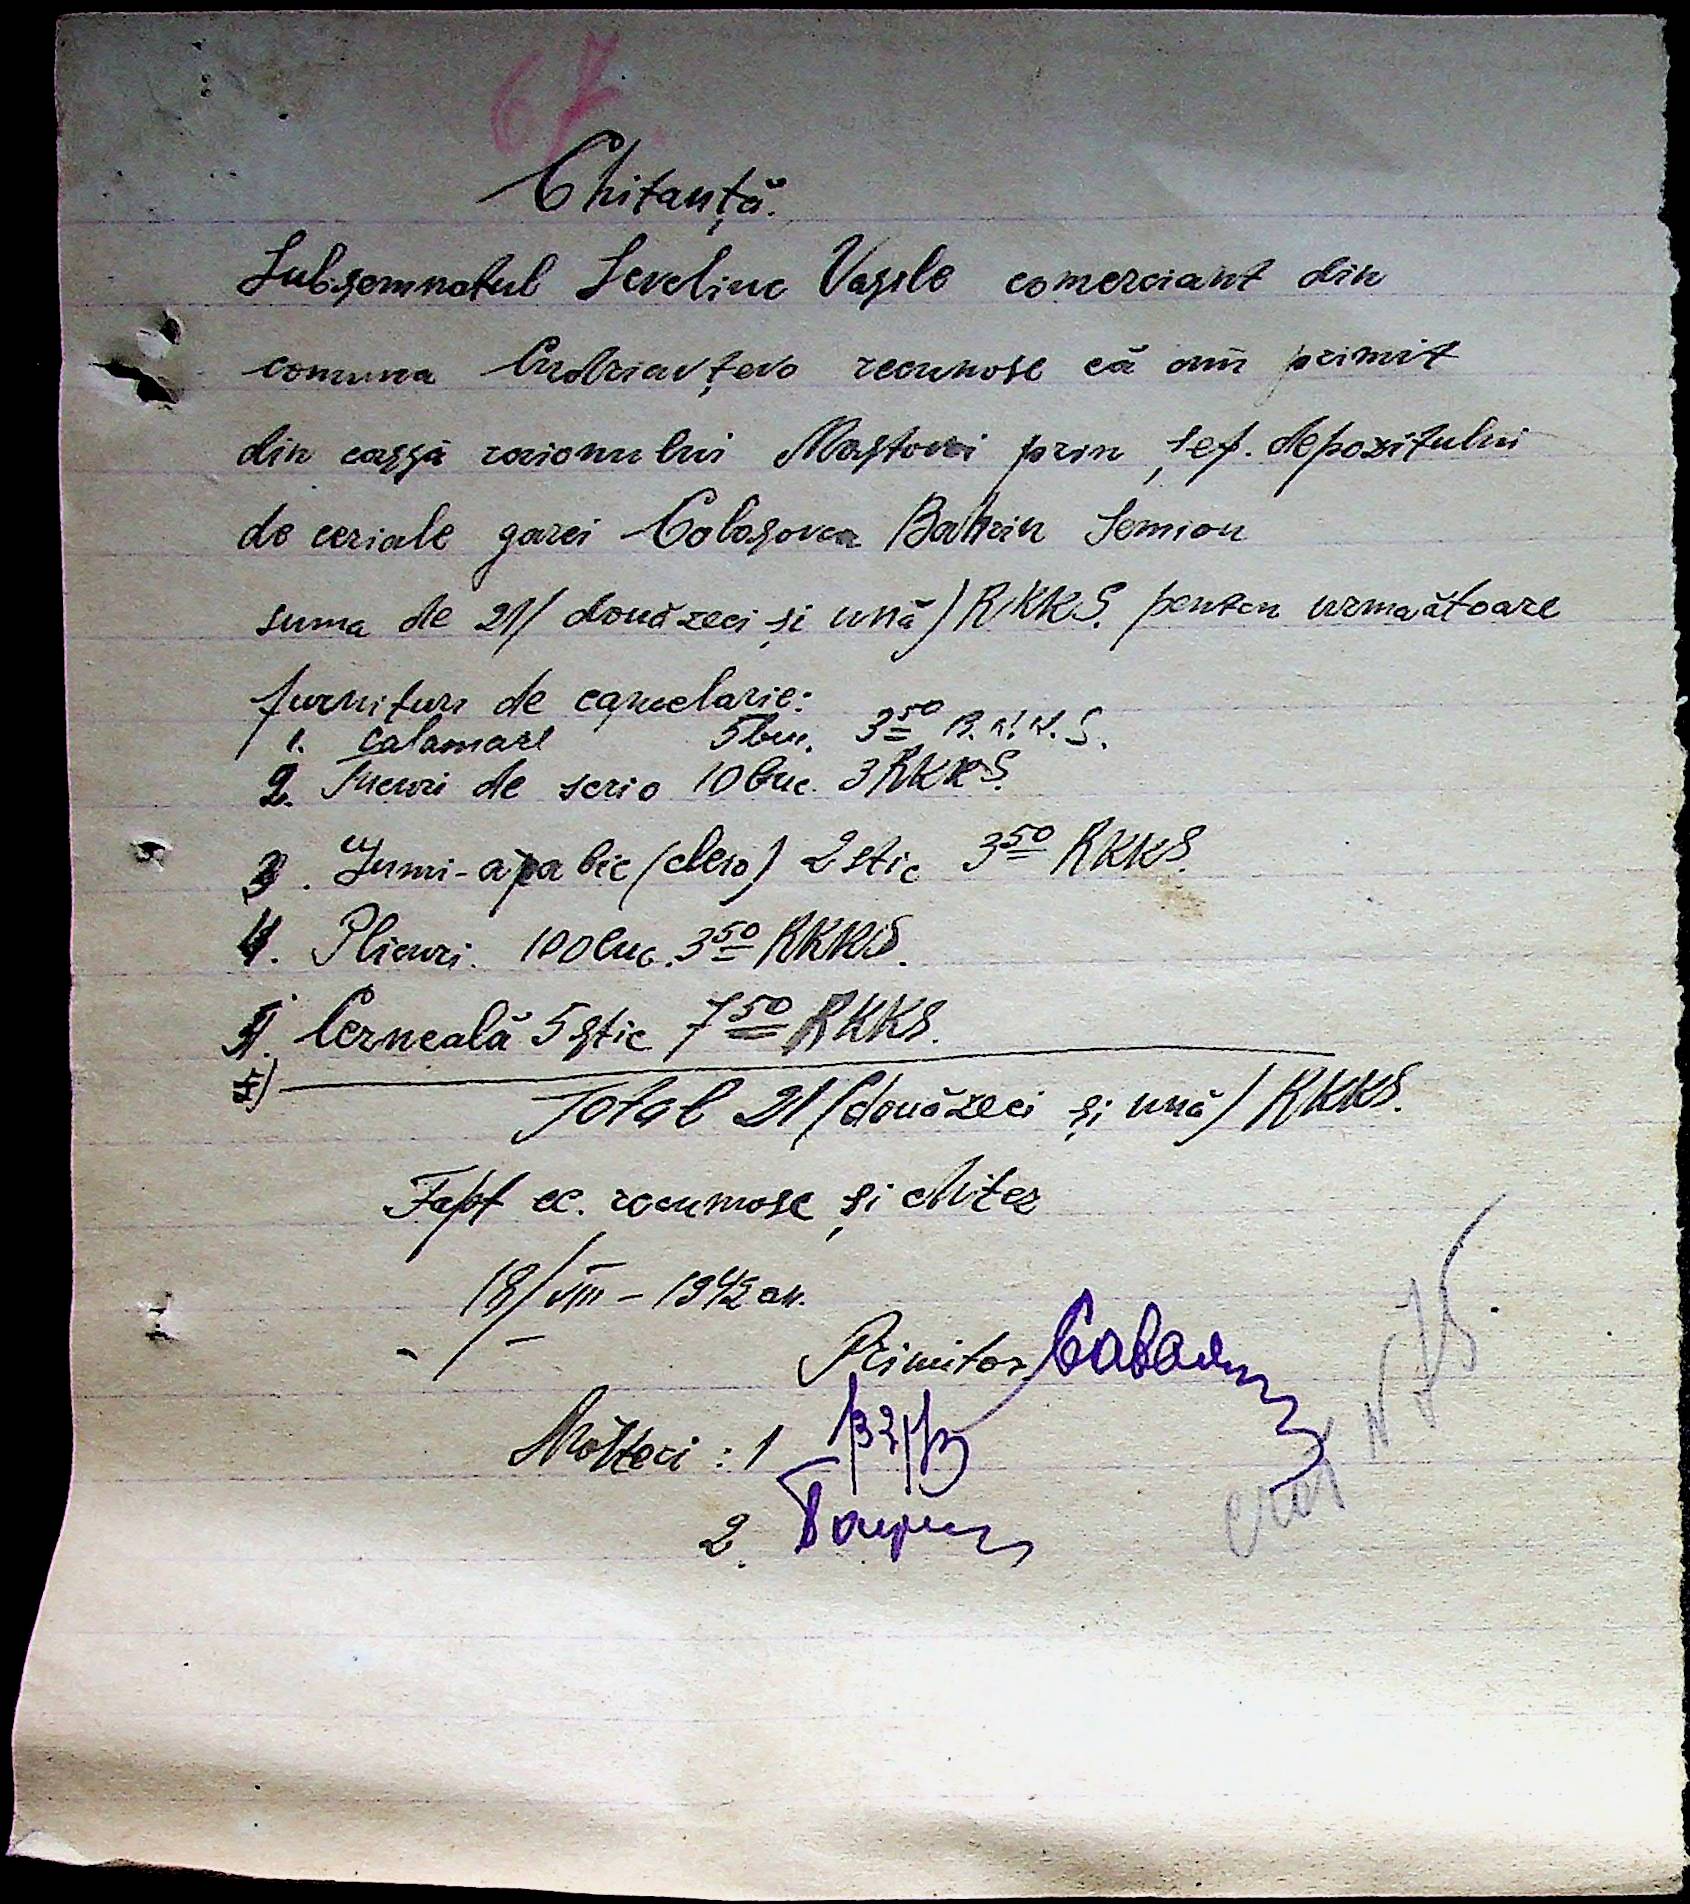 67
Chitanță.
Subsemnatul Seveliuc Vasile comerciant din
comuna Cudriavțevo recunosc că am primit
din cassa raionului Mastovoi prin șef. depozitului
de ceriale garei Colosovca Bahrin Semion
suma de 21/ douăzeci și ună) RKKS. pentru urmaătoare
furnituri de canțelarie:
1. calamare 5 buc. 3 50 R.K.K.S.
2. tucuri de scrio 10 buc. 3 RKKS.
3. Gumi-arabic (cleio) 2 stic 3 50 RKKS.
4. Plicuri. 100 buc. 3 50 RKKS.
5. Cerneală 5 stic 7 50 RKKS.
Total 21/ (douăzeci și ună) RKKS.
Fapt ce. recunosc și chitez
18/VIII - 1942 an.
Primitor
Martori : 1
2.
N 75